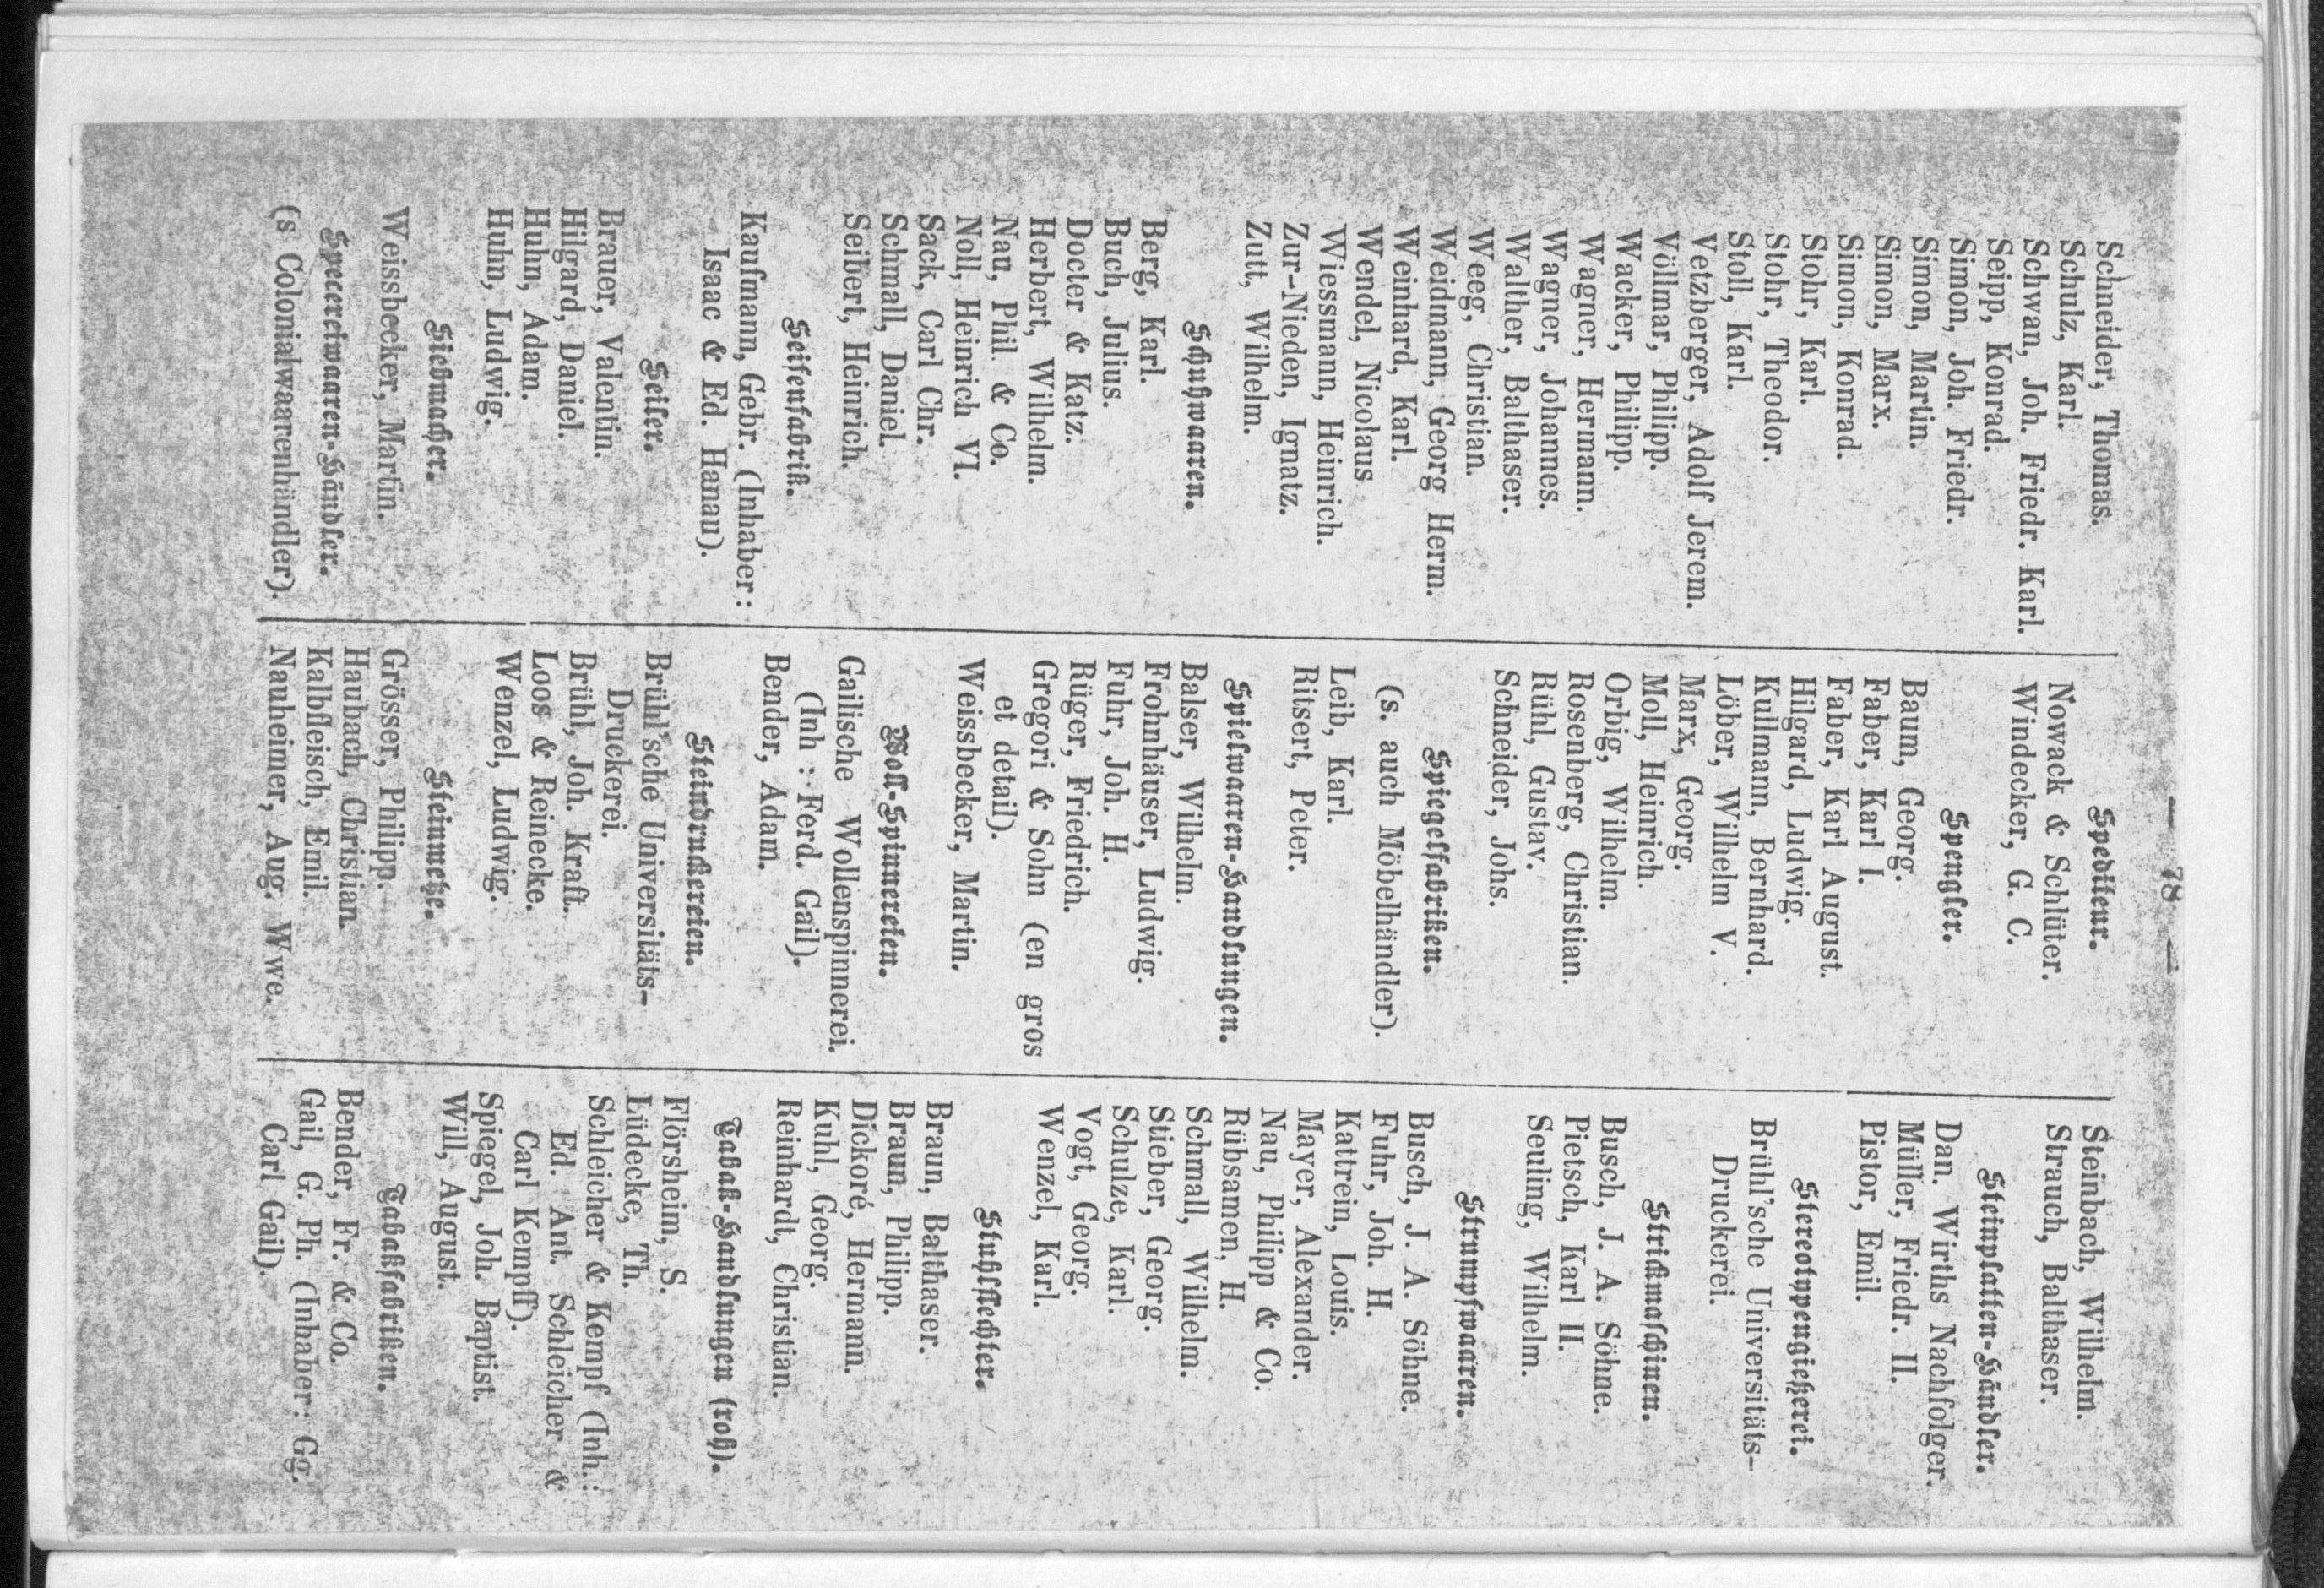 — 78 —
Schneider, Thomas.
Schulz, Karl.
Schwan, Joh. Friedr. Karl.
Seipp, Konrad.
Simon, Joh. Friedr.
Simon, Martin.
Simon, Marx.
Simon, Konrad.
Stohr, Karl.
Stohr, Theodor.
Stoll, Karl.
Vetzberger, Adolf Jerem.
Völlmar, Philipp.
Wacker, Philipp.
Wagner, Hermann.
Wagner, Johannes.
Walther, Balthaser.
Weeg, Christian.
Weidmann, Georg Herm.
Weinhard, Karl.
Wendel, Nicolaus
Wiessmann, Heinrich.
Zur-Nieden, Ignatz.
Zutt, Wilhelm.
Schuhwaaren.
Berg, Karl.
Buch, Julius.
Docter & Katz.
Herbert, Wilhelm.
Nau, Phil. & Co.
Noll, Heinrich VI.
Sack, Carl Chr.
Schmall, Daniel.
Seibert, Heinrich.
Seifenfabrik.
Kaufmann, Gebr. (Inhaber:
Isaac & Ed. Hanau).
Seiler.
Brauer, Valentin.
Hilgard, Daniel.
Huhn, Adam.
Huhn, Ludwig.
Siebmacher.
Weissbecker, Martin.
Specereiwaaren-Händler.
(s Colonialwaarenhändler).
Spediteur.
Nowack & Schlüter.
Windecker, G. C.
Spengler.
Baum, Georg.
Faber, Karl I.
Faber, Karl August.
Hilgard, Ludwig.
Kullmann, Bernhard.
Löber, Wilhelm V.
Marx, Georg.
Moll, Heinrich.
Orbig, Wilhelm.
Rosenberg, Christian.
Rühl, Gustav.
Schneider, Johs.
Spiegelfabriken.
(s. auch Möbelhändler).
Leib, Karl.
Ritsert, Peter.
Spielwaaren-Handlungen.
Balser, Wilhelm.
Frohnhäuser, Ludwig.
Fuhr, Joh. H.
Rüger, Friedrich.
Gregori & Sohn (en gros
et detail).
Weissbecker, Martin.
Woll-Spinnereien.
Gailische Wollenspinnerei.
(Inh : Ferd. Gail).
Bender, Adam.
Steindruckereien.
Brühl'sche Universitäts-
Druckerei.
Brühl, Joh. Kraft.
Loos & Reinecke.
Wenzel, Ludwig.
Steinmetze.
Grösser, Philipp.
Haubach, Christian.
Kalbfleisch, Emil.
Nauheimer, Aug. Wwe.
Steinbach, Wilhelm.
Strauch, Balthaser.
Steinplatten-Händler.
Dan. Wirths Nachfolger.
Müller, Friedr. II.
Pistor, Emil.
Stereotypengießerei.
Brühl'sche Universitäts-
Druckerei.
Strickmaschinen.
Busch, J. A. Söhne.
Pietsch, Karl II.
Seuling, Wilhelm.
Strumpfwaaren.
Busch, J. A. Söhne.
Fuhr, Joh. H.
Kattrein, Louis.
Mayer, Alexander.
Nau, Philipp & Co.
Rübsamen, H.
Schmall, Wilhelm.
Stieber, Georg.
Schulze, Karl.
Vogt, Georg.
Wenzel, Karl.
Stuhlflechter.
Braun, Balthaser.
Braun, Philipp.
Dickoré, Hermann.
Kuhl, Georg.
Reinhardt, Christian.
Tabak-Handlungen (roh).
Flörsheim, S.
Lüdecke, Th.
Schleicher & Kempf (Inh.:
Ed. Ant. Schleicher &
Carl Kempff).
Spiegel, Joh. Baptist.
Will, August.
Tabakfabriken.
Bender, Fr. & Co.
Gail, G. Ph. (Inhaber: Gg.
Carl Gail).